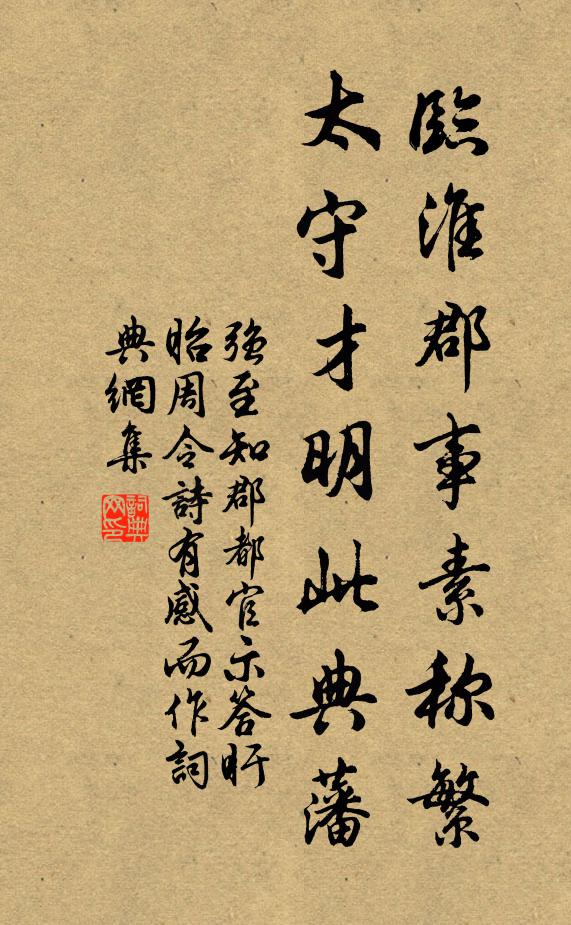 臨淮郡事素称繁
太守才明此典藩
强至知郡都官示答盱
眙周令詩有感而作詞
典網集
詞典
网印